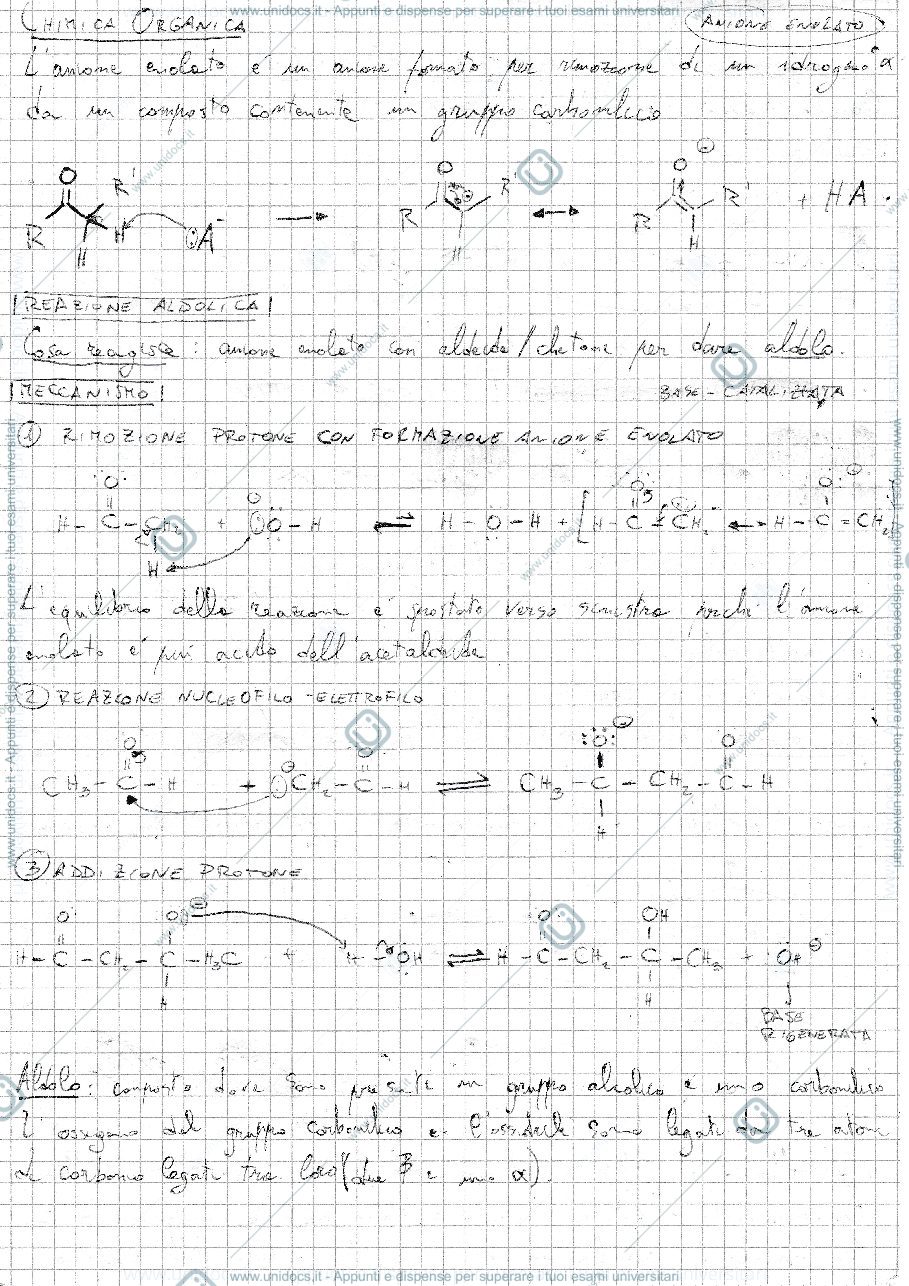 www.unidocs.it - Appunti e dispense per superare i tuoi esami universitari
CHIMICA ORGANICA
ANIONE ENOLATO
L'anione enolato è un anione formato per rimozione di un idrogeno α
da un composto contenente un gruppo carbonilico
O R' R H H A⁻ → O R' R H ↔ O ⊖ R R' H + HA.
REAZIONE ALDOLICA
Cosa reagisce: anione enolato con aldeide/chetone per dare aldolo.
MECCANISMO
BASE-CATALIZZATA
① RIMOZIONE PROTONE CON FORMAZIONE ANIONE ENOLATO
O O ⊖
H - C - CH₂ + O - H ⇌ H - O - H + [H - C - CH₂ ↔ H - C = CH₂
H
L'equilibrio della reazione è spostato verso sinistra perché l'anione
enolato è più acido dell'acetaldeide
② REAZIONE NUCLEOFILO-ELETTROFILO
O O O ⊖ O
CH₃ - C - H + ⊖CH₂ - C - H ⇌ CH₃ - C - CH₂ - C - H
H
③ ADDIZIONE PROTONE
O O⊖ O OH
H - C - CH₂ - C - H₃C + H - OH ⇌ H - C - CH₂ - C - CH₃ + OH⊖
H H
BASE
RIGENERATA
Aldolo: composto dove sono presenti un gruppo alcolico e uno carbonilico
L'ossigeno del gruppo carbonilico e l' sono legati da tre atomi
di carbonio legati tra loro (due β e uno α).
www.unidocs.it - Appunti e dispense per superare i tuoi esami universitari